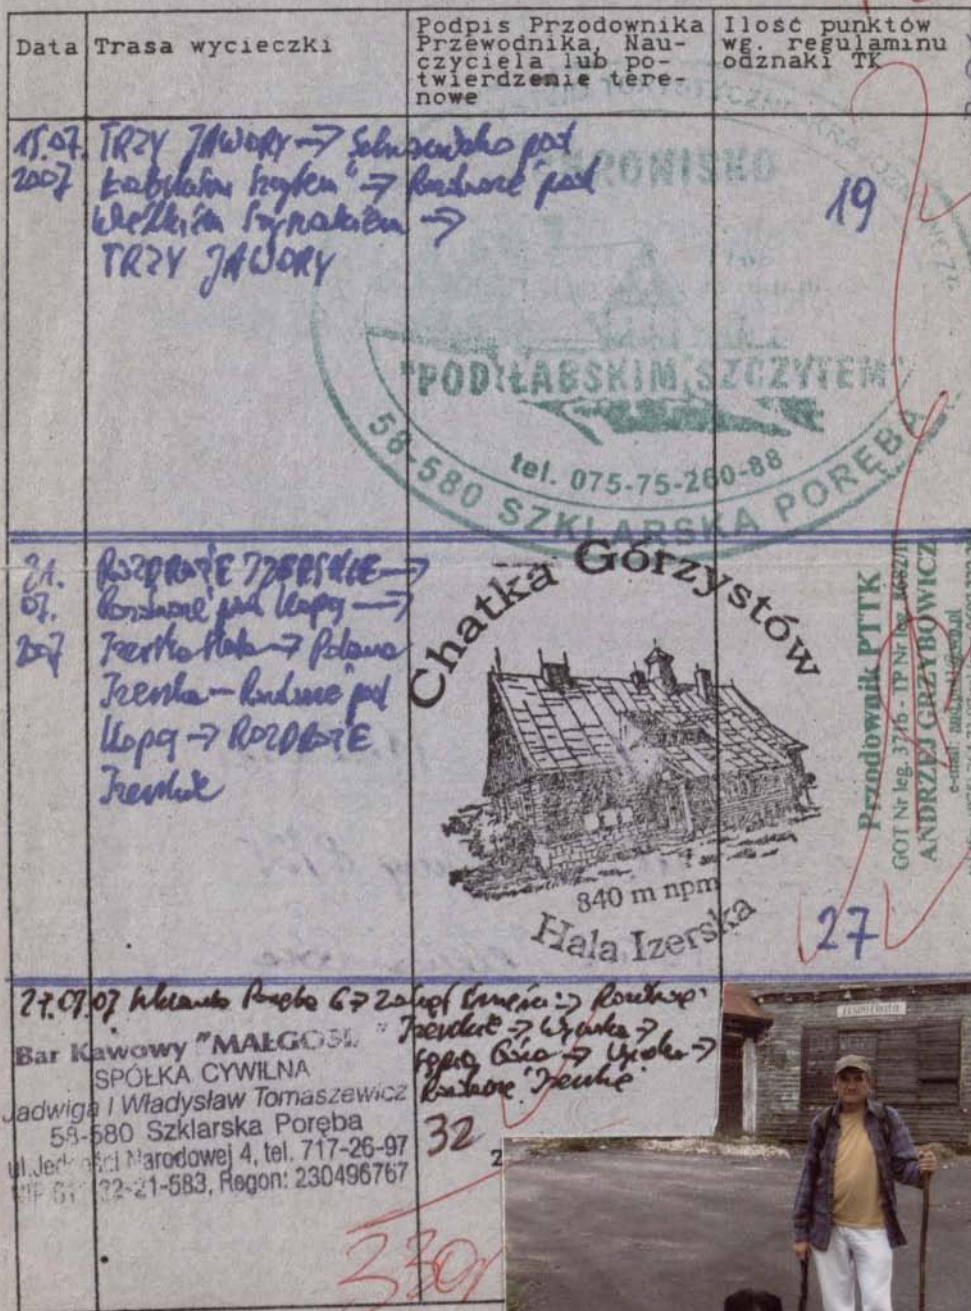 Data
Trasa wycieczki
Podpis Przodownika
Przewodnika, Nau-
czyciela lub po-
twierdzenie tere-
nowe
Ilość punktów
wg. regulaminu
odznaki TK
15.07.
2007
TRZY JAWORY → Schronisko pod
Łabskim Szczytem" → Rozdroże pod
Wielkim Szyszakiem →
TRZY JAWORY
19
SCHRONISKO
"POD ŁABSKIM SZCZYTEM"
tel. 075-75-260-88
58-580 SZKLARSKA PORĘBA
21.
07.
2007
ROZDROŻE IZERSKIE →
Rozdroże pod Kopą →
Izerska Hala → Polana
Izerska - Rozdroże pod
Kopą → ROZDROŻE
Izerskie
Chatka Górzystów
840 m npm
Hala Izerska
Przodownik PTTK
ANDRZEJ GRZYBOWICZ
27
27.07.07
Poręba
Zakręt Śmierci → Rozdroże
Izerskie → Wysoka →
Góra →
Rozdroże Izerskie
Bar Kawowy "MAŁGOSIA"
SPÓŁKA CYWILNA
Jadwiga i Władysław Tomaszewicz
58-580 Szklarska Poręba
ul. Jedności Narodowej 4, tel. 717-26-97
32-21-583, Regon: 230496767
32
330